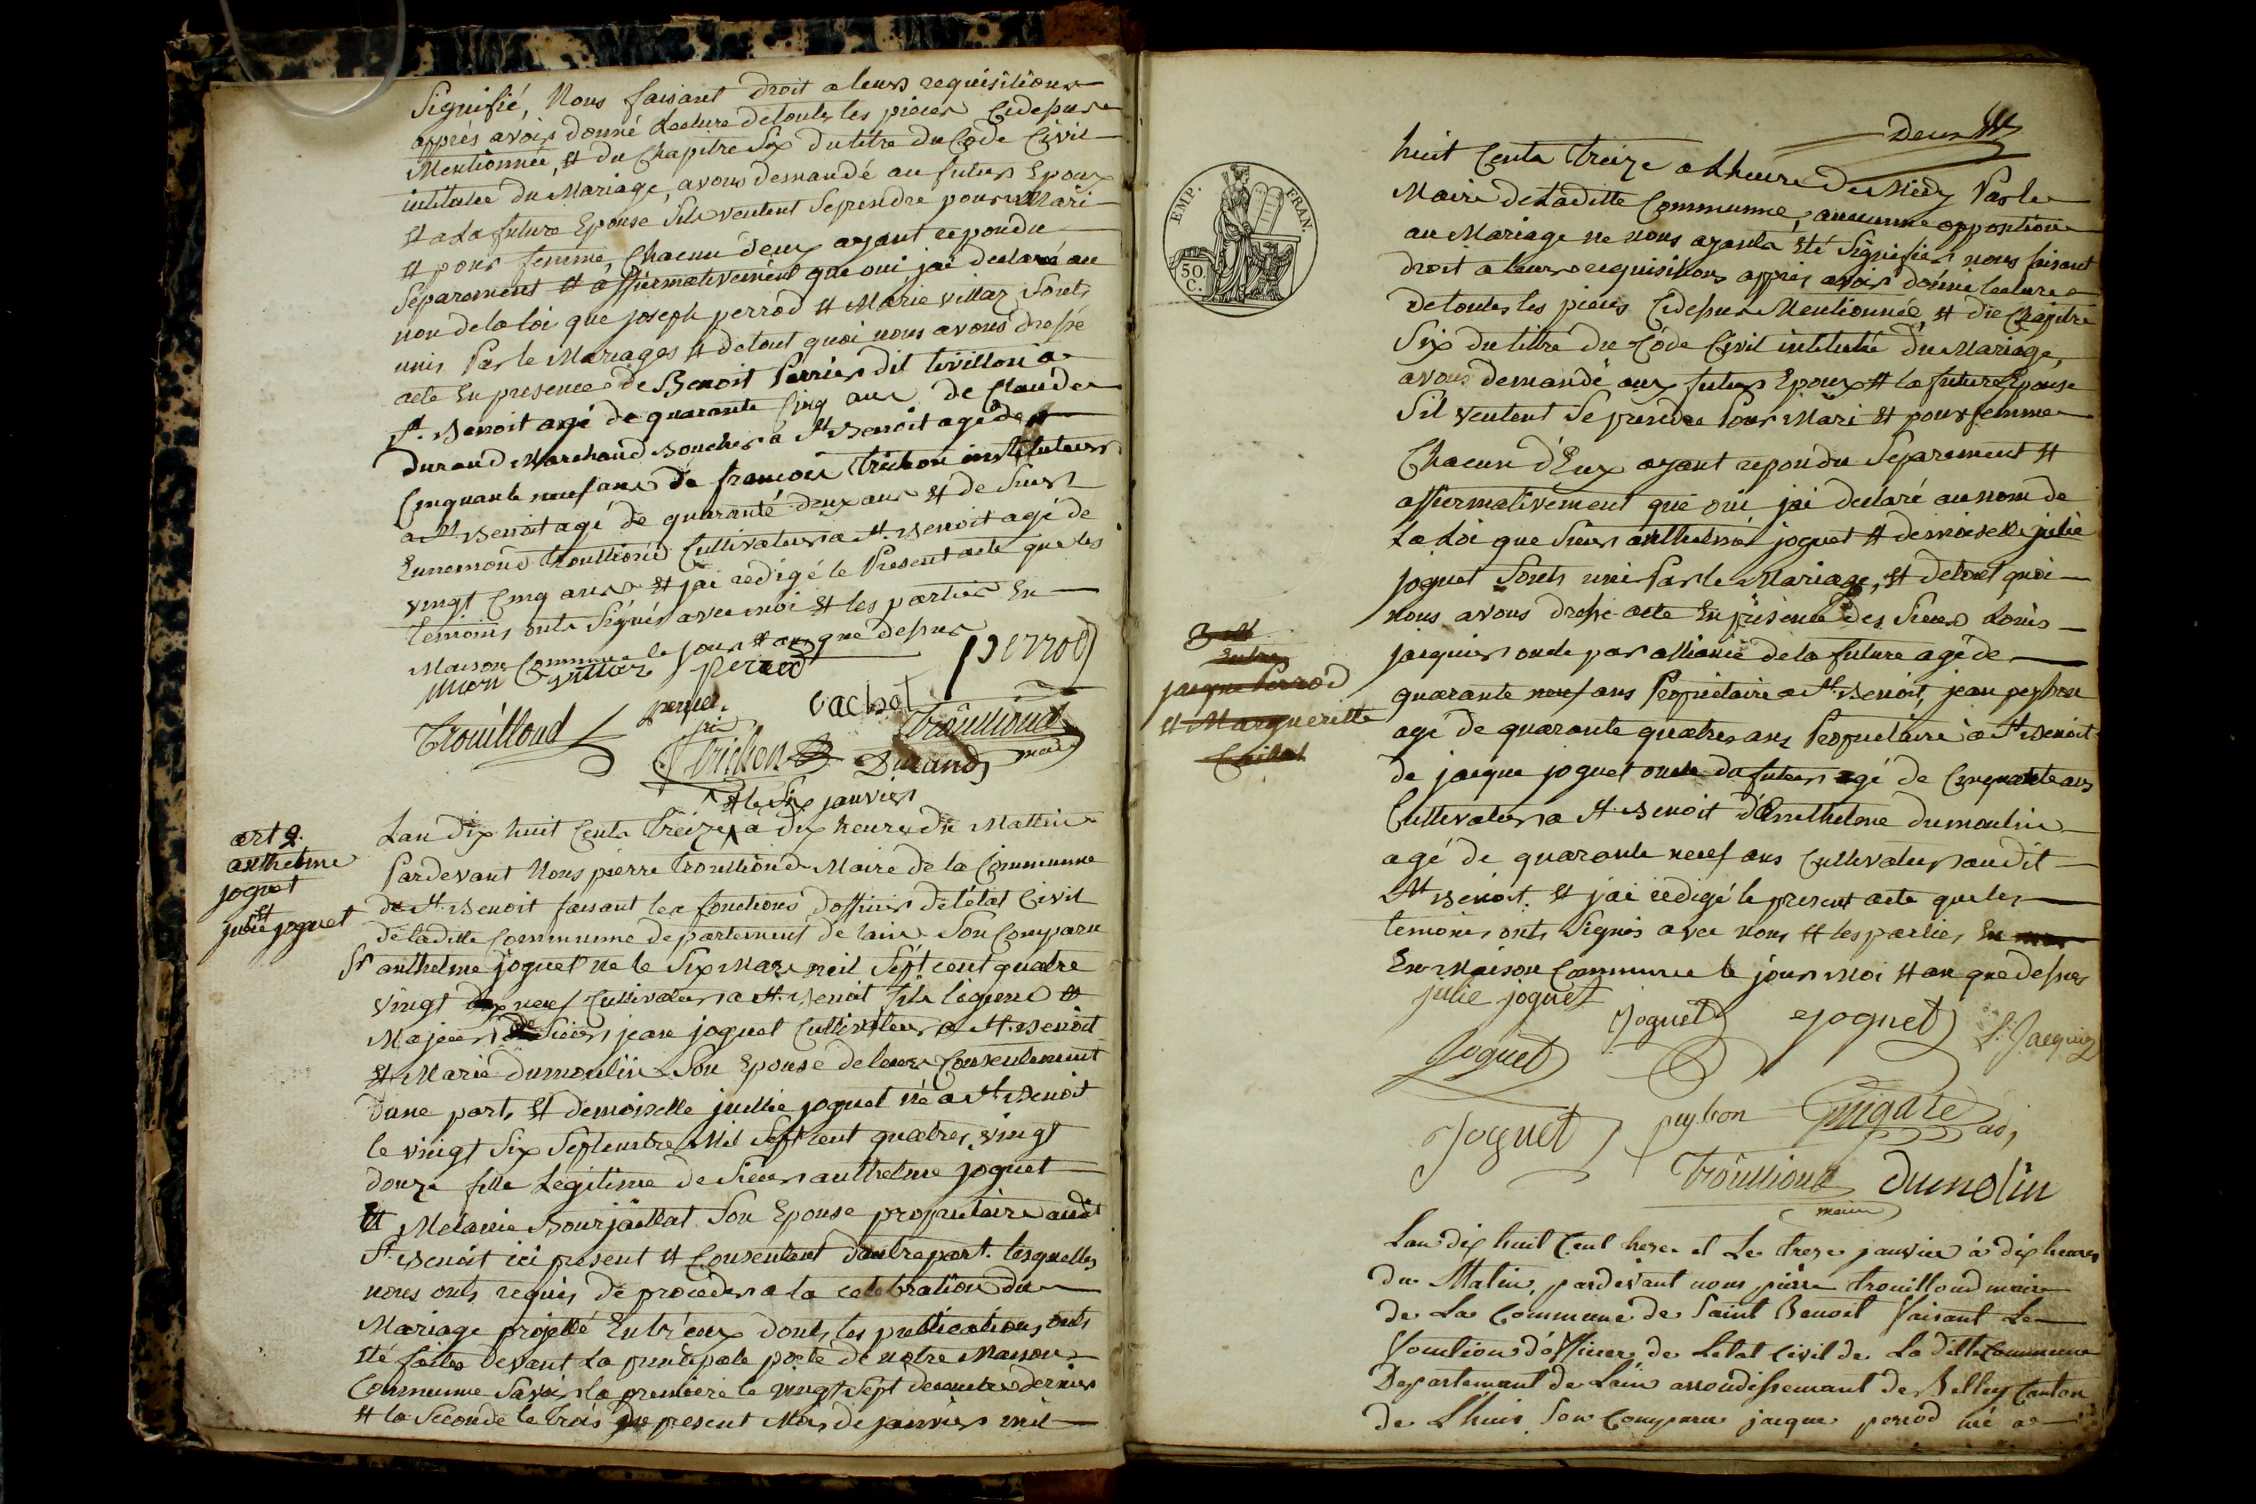 Signifié, Nous faisant droit a leurs requisitions
apprés avoir donné Lecture de toutes les pieces Cidessus
Mentionnée, et du Chapitre Six du titre du Code Civil
intitulée du Mariage, avons demandé au futur Epoux
et a La future Epouse Sils veutent Seprendre pour Mari
et pour femme, Chacun d'eux ayant repondu
Separement et affirmativement que oui jai declaré au
nom de la loi que joseph perrod et Marie villar Sonts
unis Par le Mariages et de tout quoi nous avons dressé
acte En presence de Benoit Perrier dit tivillon a
St. Benoit agé de quarante Cinq ans de Claude
durand Marchand Boucher a St Benoit agé de
Cinquante neuf ans de francois trichon instituteur
a St Benoit agé de quarante deux ans et de Sieur
Ennemond trouilloud Cultivateur a St. Benoit agé de
vingt Cinq ans et jai redigé le Present acte que les
temoins onts Signés avec moi et les parties En
Maison Commune le jour et an que dessus
villar perrod perrod
trouilloud perrier vachot trouilloud
trichon Durand maire
et le Six janvier
art 2.
anthelme
joguet
et
julie joguet
Lan dix huit Cents treize a dix heure du Mattin
Pardevant Nous pierre trouilloud Maire de la Commune
de St. Benoit faisant les fonctions dofficier de létat Civil
de ladite Commune departement de lain Son Comparu
Sr anthelme joguet né le Six Mars mil Sept cent quatre
vingt neuf Cultivateur a St. Benoit fils légime et
Majeur de Sieur jean joguet Cultivateur a St. Benoit
et Marie dumoulin Son Epouse de leurs Consentement
dune part, et demoiselle jullie joguet né a St Benoit
le vingt Six Septembre Mil Sept cent quatre vingt
douze fille Legitime de Sieur anthelme joguet
et Melanie Bourjaillat Son Epouse proprietaire audit
St. Benoit ici present et Consentent dautre part. lesquelles
nous onts requis de proceder a la celebration du
Mariage projetté Entr'eux donts les publications onts
été faites devant La principale porte de notre Maison
Commune Savoir la premiere le vingt Sept decembre dernier
et la Seconde le trois du present Mois de janvier mil
Deux
EMP. FRAN.
50 C.
huit Cents treize a Lheure de Midy Par le
Maire de Laditte Commune, aucunne opposition
au Mariage ne nous ayants été Signifier nous faisant
droit a leurs requisitions apprés avoir donné lecture
de toutes les pieces Cidessus Mentionnée, et du Chapitre
Six du titre du Code Civil intitulée du Mariage,
avons demandé aux futurs Epoux et la future Epouse
Sil veutent Se prendre Pour Mari et pour femme
Chacun d'Eux ayant repondu Separement et
affirmativement que oui jai declaré au nom de
La Loi que Sieur anthelme joguet et demoiselle julie
joguet Sonts unis Par le Mariage, et de tout quoi
nous avons dressé acte En présence des Sieurs Louis
jacquier oncle par alliance de la future agé de
quarante neuf ans Propriétaire a St. Benoit, jean peybon
agé de quarante quatre ans Propriétaire a St. Benoit
de jacque joguet oncle du futur agé de Cinquante ans
Cultivateur a St. Benoit d'anthelme dumoulin
agé de quarante neuf ans Cultivateur audit
St Bénoit. et jai redigé le present acte que les
temoins onts Signés avec Nous et les parties En
En Maison Commune le jour Moi et an que dessus
Entre
jacque Perrod
et Margueritte
julie joguet joguet joguet L. Jacquier
joguet
joguet peybon adj
trouilloud dumolin
maire
Lan dix huit Cent treze et Le treze janvier à dix heures
du Matin, pardevant nous pierre trouilloud maire
de La Commune de Saint Benoit faisant Le
fonction d'officier de Letat Civil de La ditte Commune
Departement de Lain arrondissemant de Belley Canton
de Lhuis Son Comparu jacque perrod né a